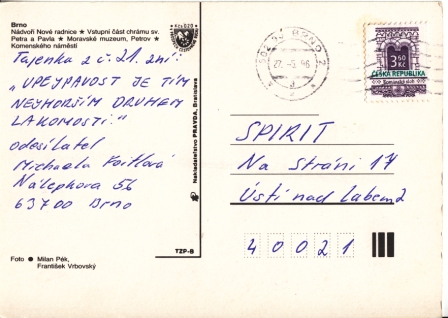 Brno
Nádvoří Nové radnice ★ Vstupní část chrámu sv.
Petra a Pavla ★ Moravské muzeum, Petrov ★
Komenského náměstí
Tajenka z č. 21. zní:
„UPEJPAVOST JE TÍM
NEJHORŠÍM DRUHEM
LAKOMOSTI."
odesílatel
Michaela
Nálepkova 56
63700 Brno
Foto ● Milan Pék,
František Vrbovský
Nakladatelství PRAVDA, Bratislava
TZP-B
Kčs 0,20
BRNO 2
27.-5.96
3,60
Kč
ČESKÁ REPUBLIKA
Románský sloh
SPIRIT
Na Stráni 17
Ústí nad Labem 2
40021